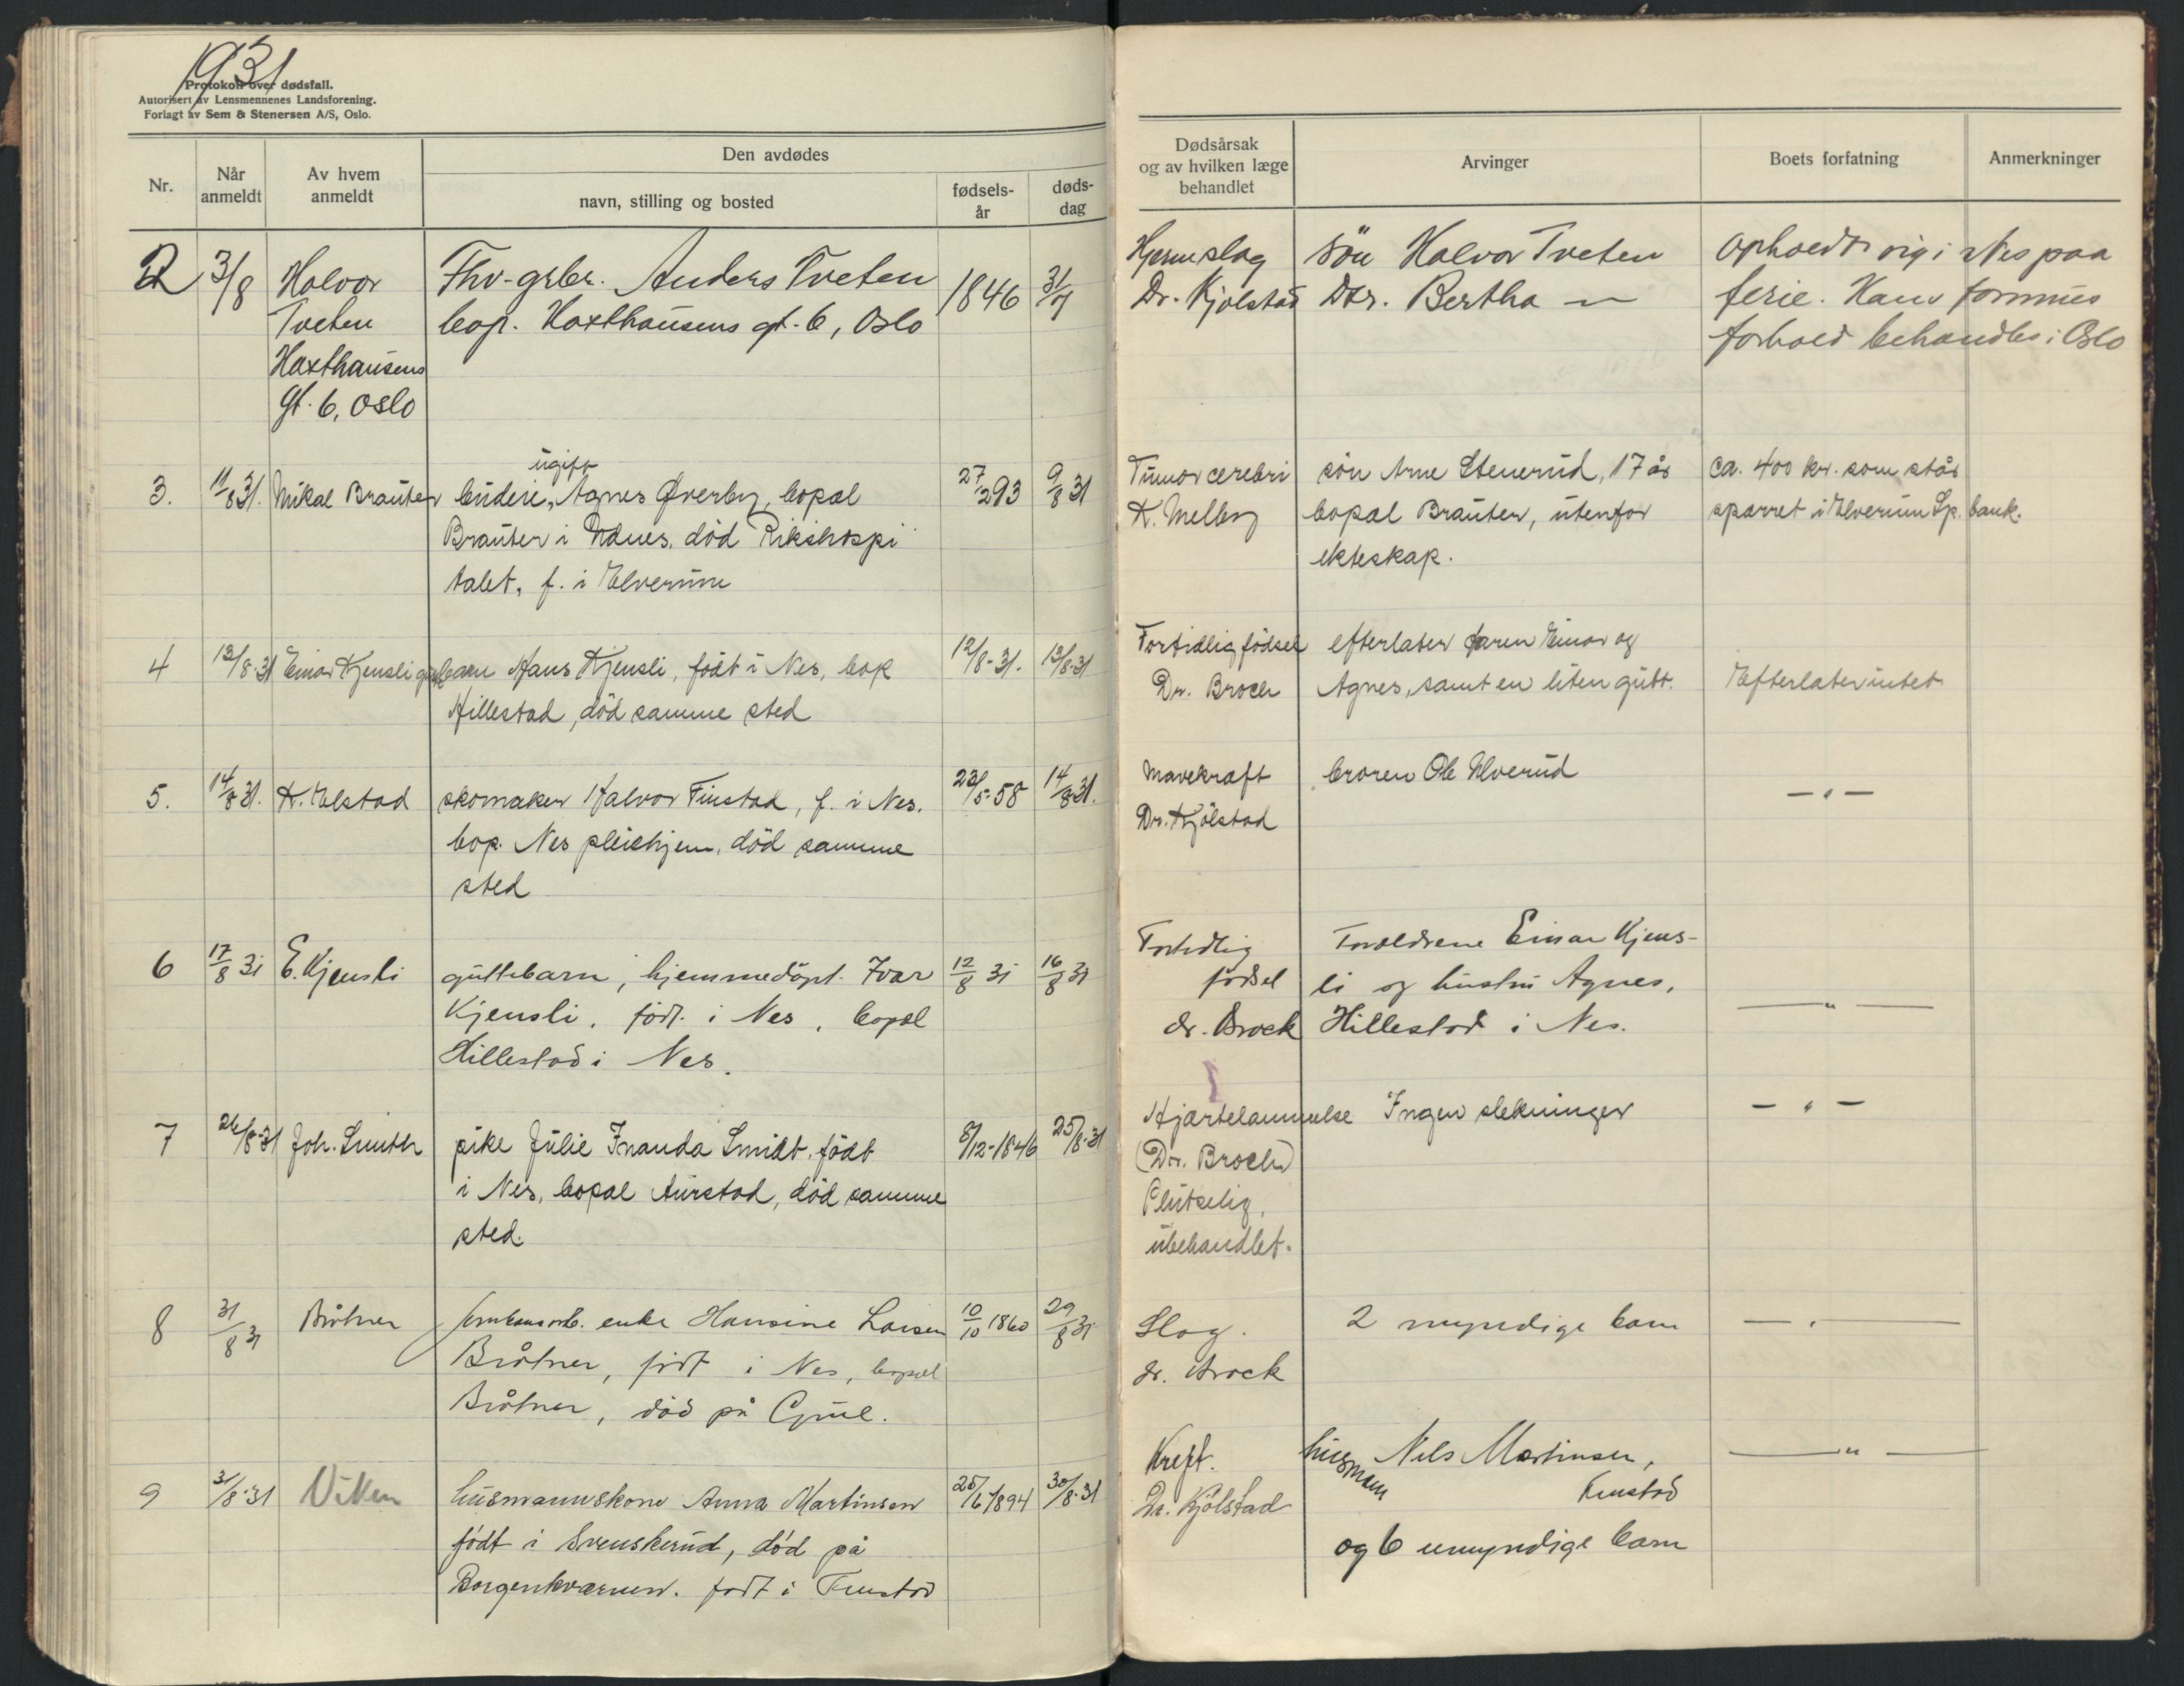 1931
Protokoll over dødsfall.
Autorisert av Lensmennenes Landsforening.
Forlagt av Sem & Stenersen A/S, Oslo.
Nr.
Når anmeldt
Av hvem anmeldt
Den avdødes
navn, stilling og bosted
fødsels-år
døds-dag
Dødsårsak og av hvilken læge behandlet
Arvinger
Boets forfatning
Anmerkninger
2
3/8
Halvor
Tveten
Haxthausens
gt. 6, Oslo
Fhv. grbr. Anders Tveten
bop. Haxthausens gt. 6, Oslo
1846
31/7
Hjerneslag
Dr. Kjølstad
søn Halvor Tveten
Dtr. Bertha —
Opholdt sig i Nes paa
ferie. Hans formues
forhold behandles i Oslo
3.
11/8 31.
Mikal Brauter
ugift
budeie, Agnes Øverby, bopæl
Brauter i Udnes, død Rikshospi
talet, f. i Elverum
27/2 93
9/8 31
Tumor cerebri
K. Melby
søn Arne Stenerud, 17 år
bopæl Brauter, utenfor
ekteskap.
ca. 400 kr. som står
sparret i Elverum Sp. bank.
4
13/8-31
Einar Kjensli
barn Hans Kjensli, født i Nes, bop
Hillestad, død samme sted
12/8-31.
13/8-31
For tidlig fødsel
Dr. Broch
efterlater faren Einar og
Agnes, samt en liten gutt.
Efterlater intet
5.
14/8 31.
K. Elstad
skomaker Halvor Finstad, f. i Nes.
bop. Nes pleiehjem, død samme
sted
23/5-58
14/8 31.
Mavekræft
Dr. Kjølstad
broren Ole Ulverud
— " —
6
17/8 31
E. Kjensli
guttebarn, hjemmedøpt Ivar
Kjensli, født i Nes, bopæl
Hillestad i Nes.
12/8 31
16/8 31
For tidlig
fødsel
dr. Brock
Foreldrene Einar Kjens-
li og hustru Agnes,
Hillestad i Nes.
— " —
7
26/8-31
Joh. Smith
pike Julie Inanda Smidt, født
i Nes, bopæl Aurstad, død samme
sted.
8/12-1846
25/8-31
Hjertelammelse
(Dr. Broch)
Plutselig,
ubehandlet.
Ingen slektninger
— " —
8
31/8 31
Bråtner
enke Hansine Larsen
Bråtner, født i Nes, bopæl
Bråtner, død på
10/10 1860
29/8 31
Slag.
dr. Brock
2 myndige barn
— " —
9
31/8-31
husmannskone Anna Martinsen
født i Svenskerud, død på
Borgenkværnen. født i Funstad
25/6-1894
30/8-31
Kreft.
Dr. Kjølstad
husmann Nils Martinsen,
Funstad
og 6 umyndige barn
— " —